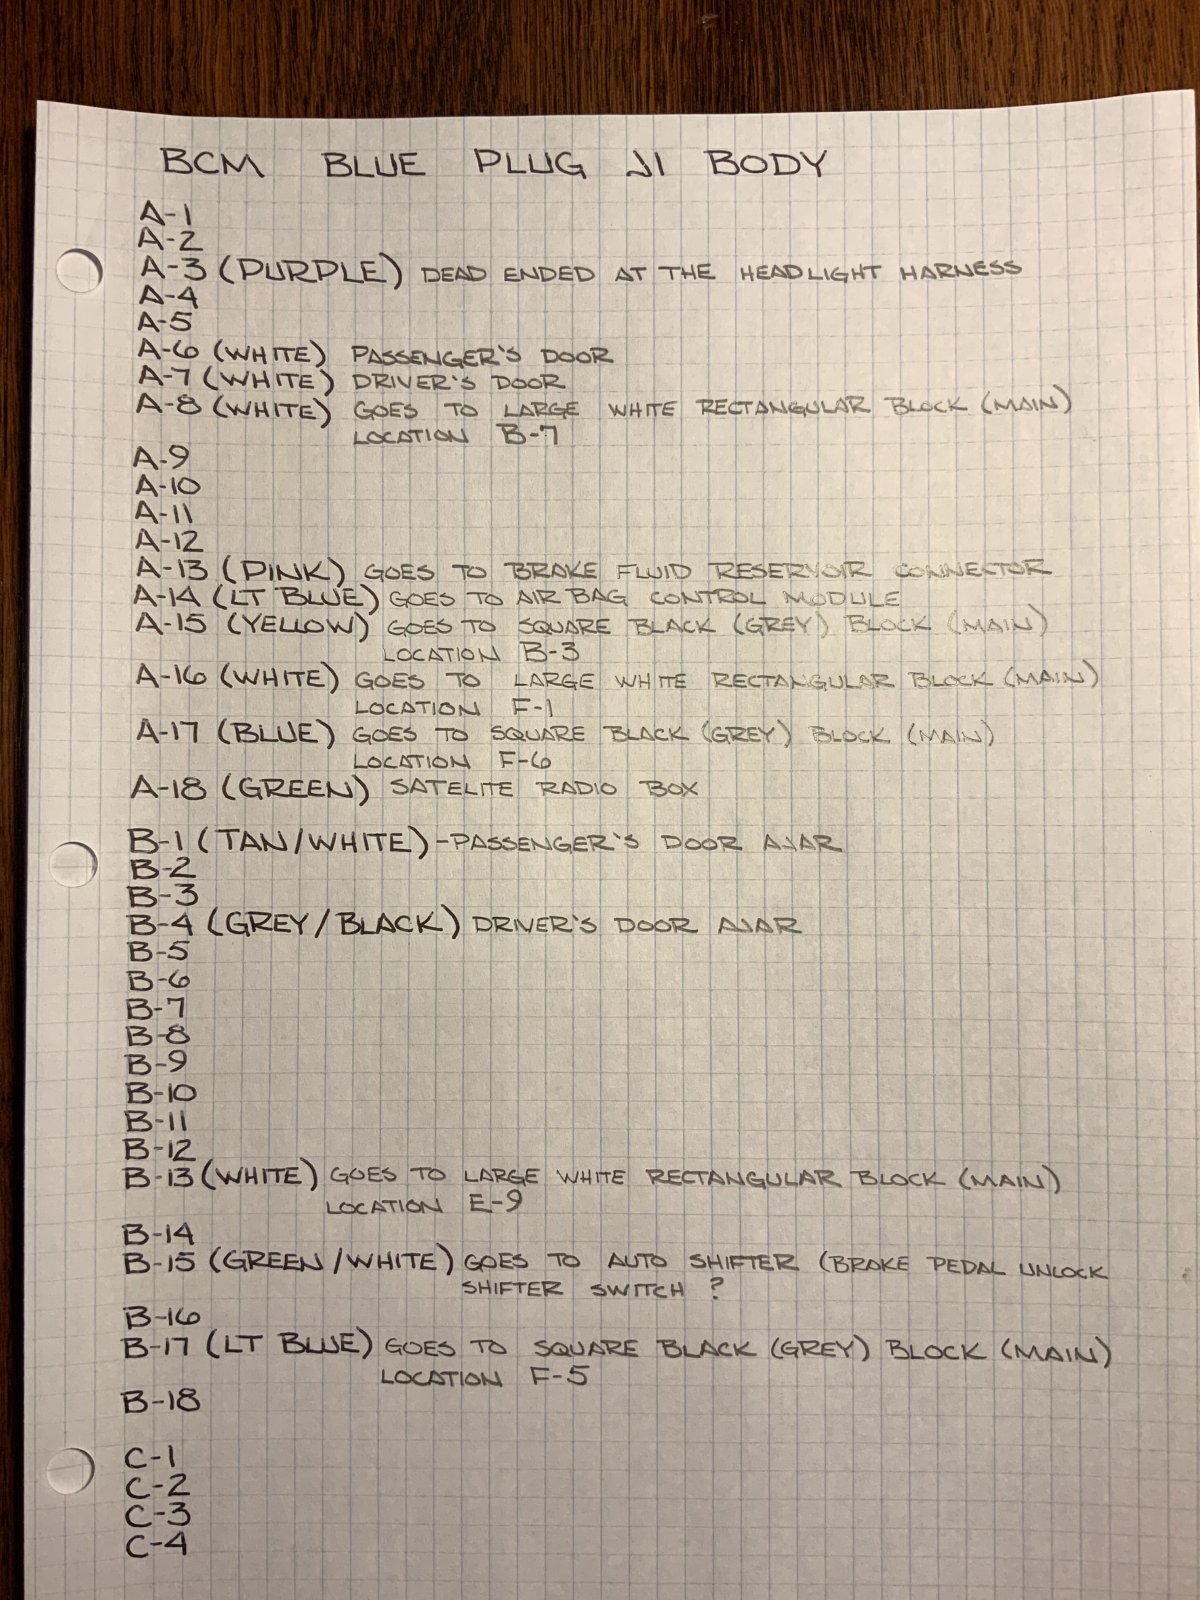 BCM BLUE PLUG J1 BODY
A-1
A-2
A-3 (PURPLE) DEAD ENDED AT THE HEADLIGHT HARNESS
A-4
A-5
A-6 (WHITE) PASSENGER'S DOOR
A-7 (WHITE) DRIVER'S DOOR
A-8 (WHITE) GOES TO LARGE WHITE RECTANGULAR BLOCK (MAIN)
LOCATION B-7
A-9
A-10
A-11
A-12
A-13 (PINK) GOES TO BRAKE FLUID RESERVOIR CONNECTOR
A-14 (LT BLUE) GOES TO AIR BAG CONTROL MODULE
A-15 (YELLOW) GOES TO SQUARE BLACK (GREY) BLOCK (MAIN)
LOCATION B-3
A-16 (WHITE) GOES TO LARGE WHITE RECTANGULAR BLOCK (MAIN)
LOCATION F-1
A-17 (BLUE) GOES TO SQUARE BLACK (GREY) BLOCK (MAIN)
LOCATION F-6
A-18 (GREEN) SATELITE RADIO BOX
B-1 (TAN/WHITE) -PASSENGER'S DOOR AJAR
B-2
B-3
B-4 (GREY/BLACK) DRIVER'S DOOR AJAR
B-5
B-6
B-7
B-8
B-9
B-10
B-11
B-12
B-13 (WHITE) GOES TO LARGE WHITE RECTANGULAR BLOCK (MAIN)
LOCATION E-9
B-14
B-15 (GREEN/WHITE) GOES TO AUTO SHIFTER (BRAKE PEDAL UNLOCK
SHIFTER SWITCH ?
B-16
B-17 (LT BLUE) GOES TO SQUARE BLACK (GREY) BLOCK (MAIN)
LOCATION F-5
B-18
C-1
C-2
C-3
C-4